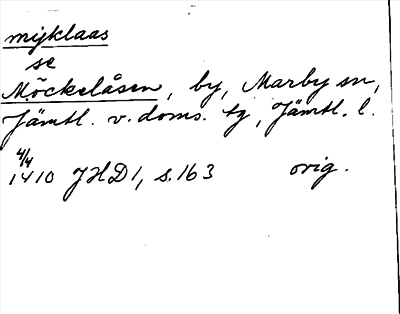 mijklaas
se
Möckelåsen, by, Marby sn,
Jämtl. v. doms. tg, Jämtl. l.
4/4
1410 JHD 1, s. 163 orig.